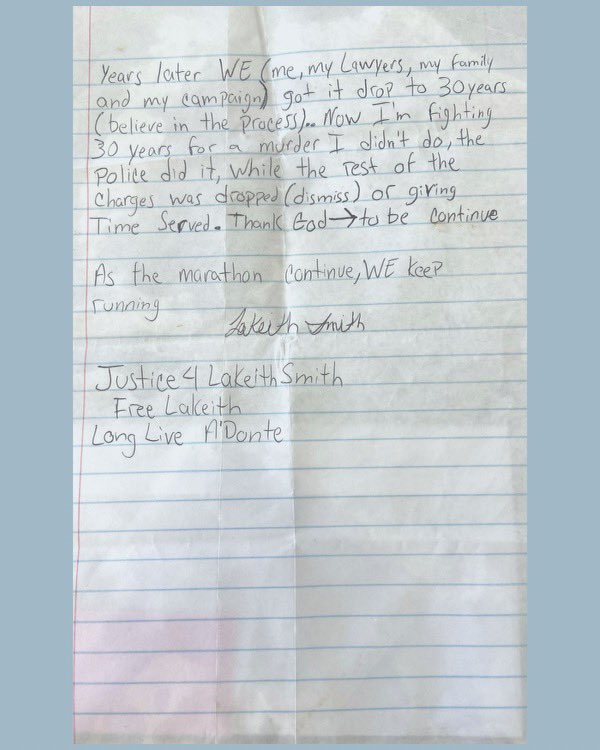 Years later WE (me, my Lawyers, my family
and my campaign) got it drop to 30 years
(believe in the process).. Now I'm fighting
30 years for a murder I didn't do, the
Police did it, while the rest of the
charges was dropped (dismiss) or giving
Time Served. Thank God → to be continue
As the marathon continue, WE keep
running
Lakeith Smith
Justice 4 Lakeith Smith
Free Lakeith
Long Live A'Donte